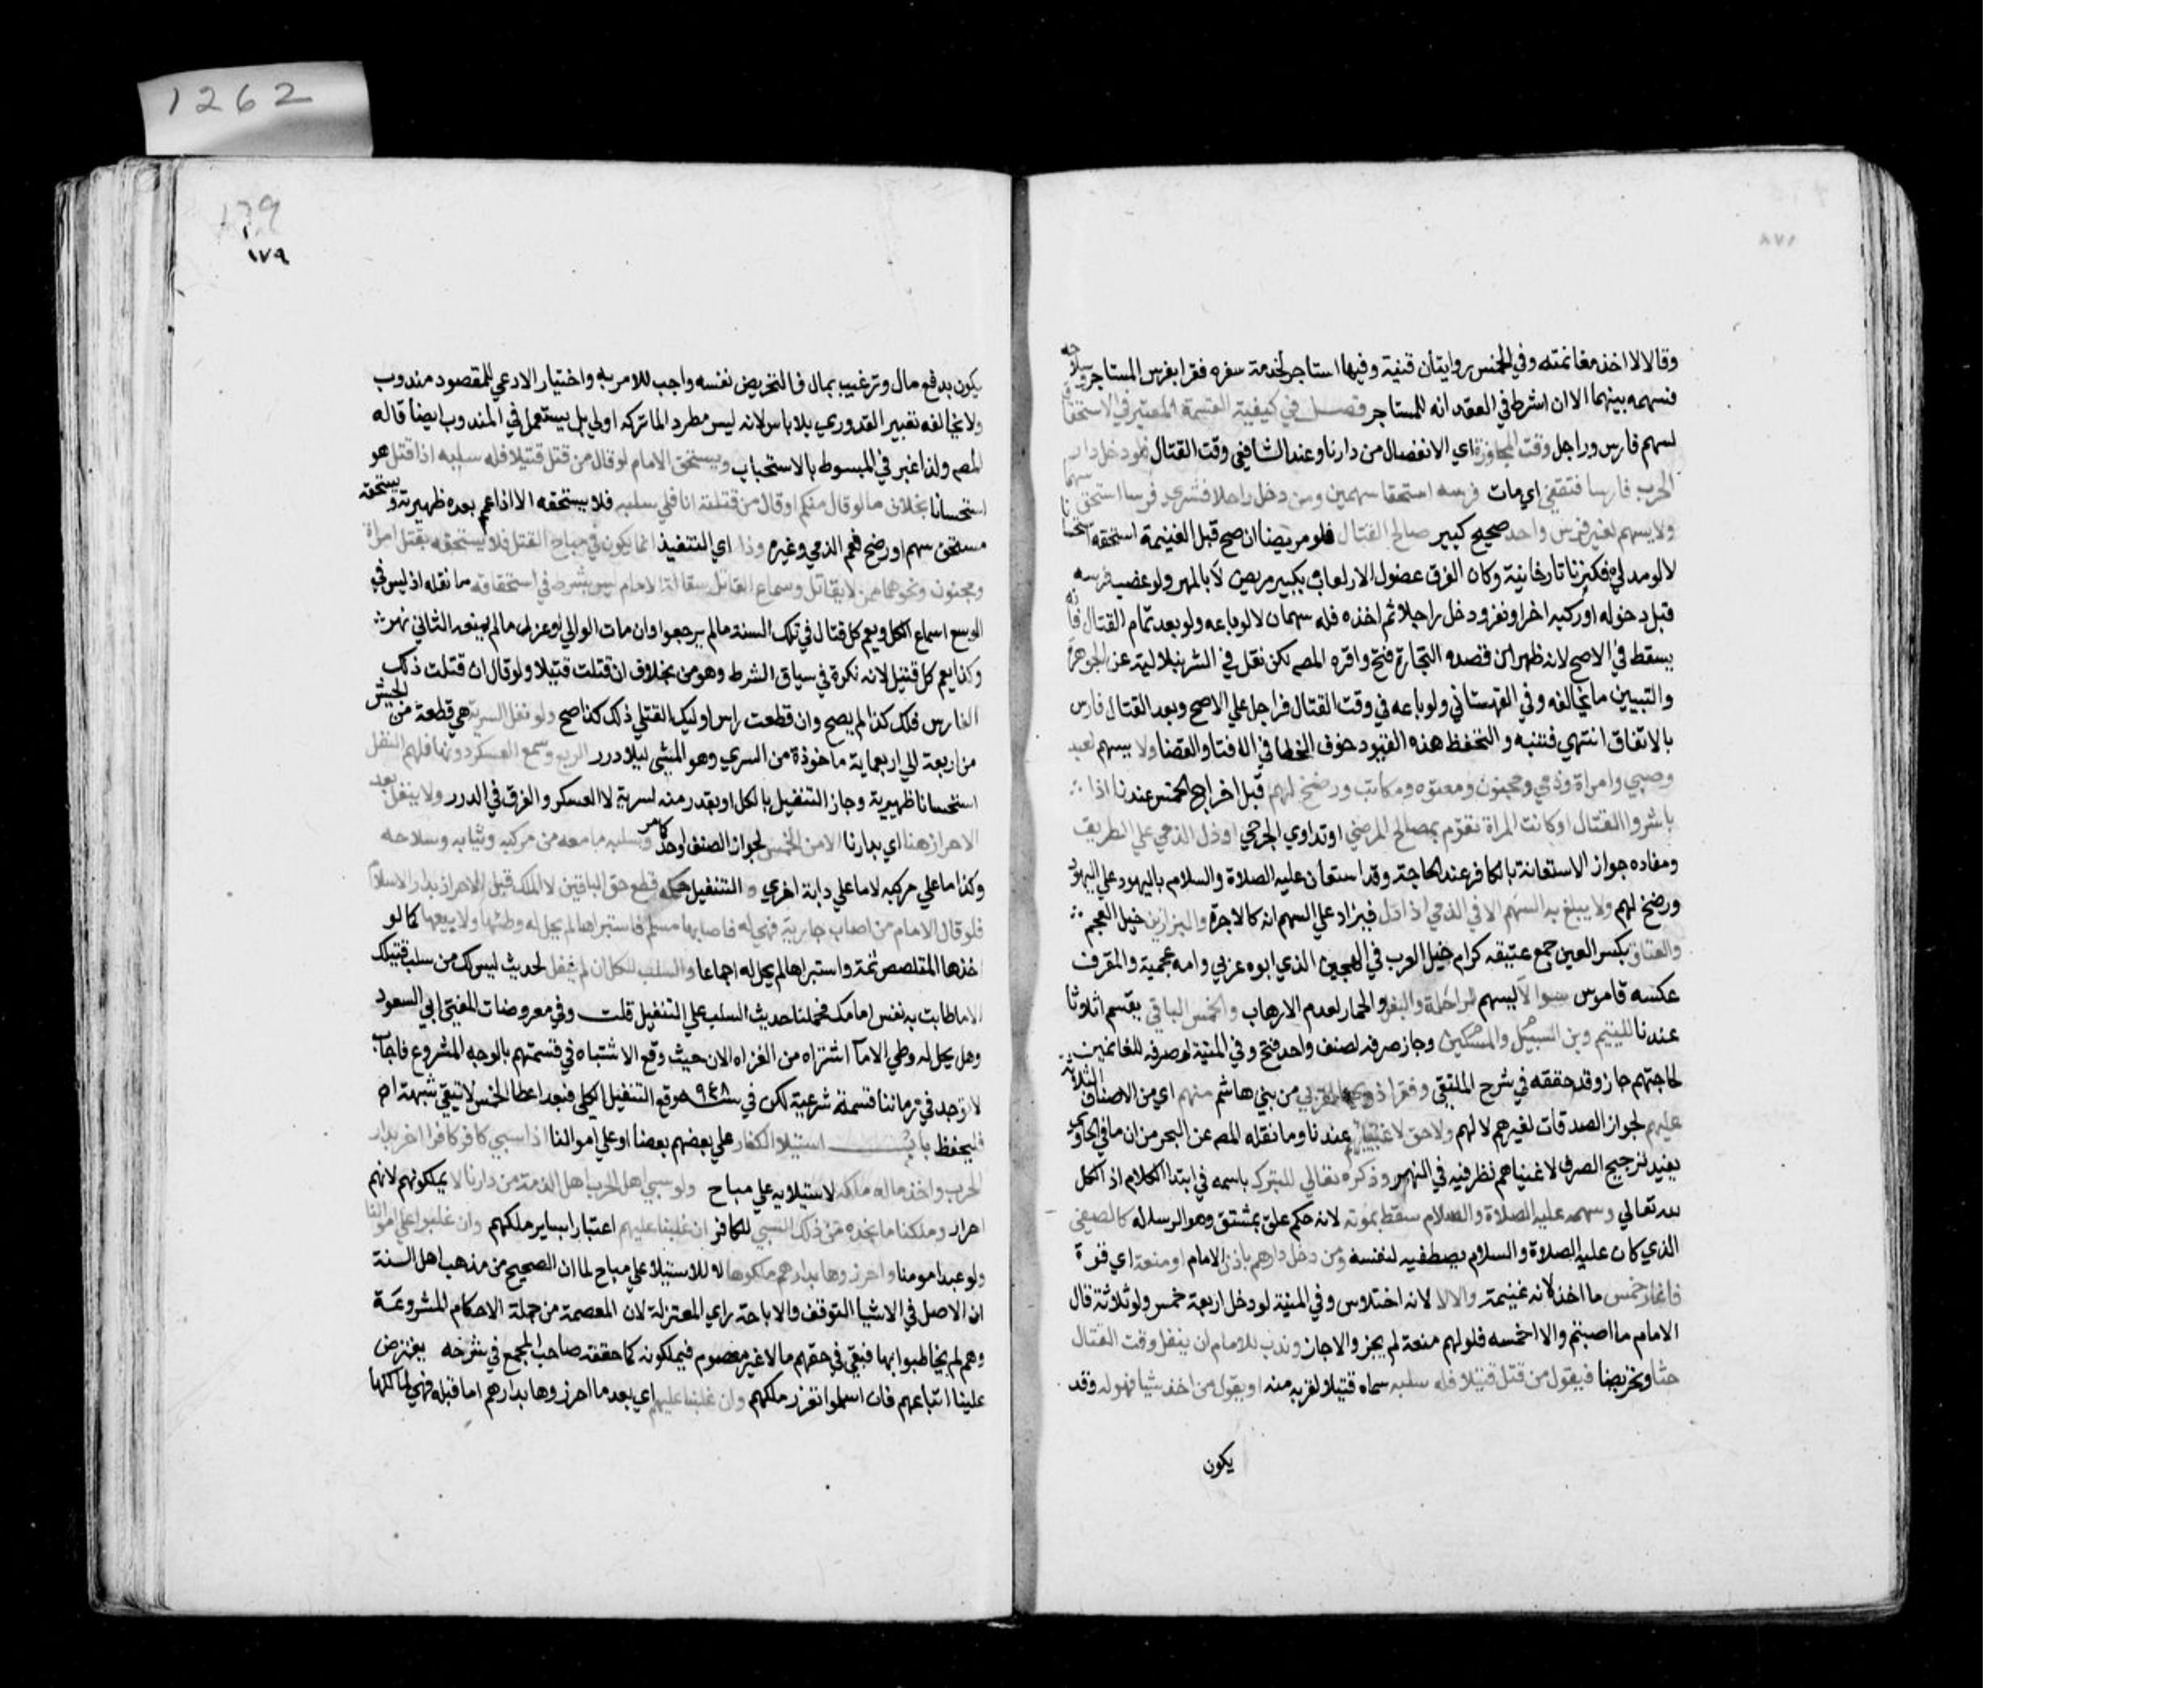 وقالا لا اخذ مغانمته وفي الخمس روايتان قنية وفيها استاجر لخدمة سفره فغزا بفرس المستاجر وسلاحه
فسهمه بينهما الا ان اشرط في العقد انه للمستاجر فصل في كيفية القسمة المعتبر في الاستحقاق
لسهم فارس وراجل وقت المجاوزة اي الانفصال من دارنا وعند الشافعي وقت القتال فلو دخل دار
الحرب فارسا فنفق اي مات فرسه استحقا سهمين ومن دخل راجلا فشري فرسا استحق سهما
ولا يسهم لغير فرس واحد صحيح كبير صالح لقتال فلو مريضا ان صح قبل الغنيمة استحقه استحسانا
لا لو مهرا فكبر تاتارخانية وكان الفرق حصول الارهاب بكبير مريض لا بالمهر ولو غصب فرسه
قبل دخوله او ركبه اخر او نفر ودخل راجلا ثم اخذه فله سهمان لا لو باعه ولو بعد تمام القتال فانه
يسقط في الاصح لانه ظهر ان قصده التجارة فتح واقره المصـ لكن نقل في الشرنبلالية عن الجوهرة
والتبيين ما يخالفه وفي القهستاني ولو باعه في وقت القتال فراجل علي الاصح وبعد القتال فارس
بالاتفاق انتهي فتنبه والتحفظ هذه القيود خوف الخطا في الافتا والقضا ولا يسهم لعبد
وصبي وامراة وذمي ومجنون ومعتوه ومكاتب ورضخ لهم قبل اخراج الخمس عندنا اذا
باشروا القتال او كانت المراة تقوم بمصالح المرضي او تداوي الجرحي او دل الذمي علي الطريق
ومفاده جواز الاستعانة بالكافر عند الحاجة وقد استعان عليه الصلاة والسلام باليهود علي اليهود
ورضخ لهم ولا يبلغ به السهم الا في الذمي اذا دل فيزاد علي السهم لانه كالاجرة والبرازين خيل العجم
والعتاق بكسر العين جمع عتيقه كرام خيل العرب في الهجين الذي ابوه عربي وامه عجمية والمقرف
عكسه قاموس سوا لا يسهم للراحلة والبغل والحمار لعدم الارهاب والخمس الباقي يقسم اثلاثا
عندنا لليتيم وبن السبيل والمسكين وجاز صرفه لصنف واحد فتح وفي المنية لو صرفه للغانمين
لحاجتهم جاز وقد حققه في شرح الملتقي وفقرا ذوي القربي من بني هاشم منهم اي من الاصناف الثلاثة
عليهم لجواز الصدقات لغيرهم لا لهم ولا حق لاغنيائهم عندنا وما نقله المصـ عن البحر من ان ما في الحاوي
يفيد ترجيح الصرف لاغنياهم نظر فيه في النهر وذكره تعالي للتبرك باسمه في ابتدا الكلام اذ الكل
لله تعالي وسهمه عليه الصلاة والسلام سقط بموته لانه حكم علق بمشتق وهو الرسالة كالصفي
الذي كان عليه الصلاة والسلام يصطفيه لنفسه ومن دخل دارهم باذن الامام او منعة اي قوة
فاغار خمس ما اخذ لانه غنيمة والا لا لانه اختلاس وفي المنية لو دخل اربعة خمس ولو ثلاثة قال
الامام ما اصبتم والا اخمسه فلو لهم منعة لم يجز والا جاز وندب للامام ان ينفل وقت القتال
حثا وتحريضا فيقول من قتل قتيلا فله سلبه سماه قتيلا لقربه منه او يقول من اخذ شيا فهو له وقد
يكون
١٧٩
يكون بدفع مال وترغيب بمال فالتحريض نفسه واجب للامر به واختيار الادعي للمقصود مندوب
ولا يخالفه تعبير القدوري بلا باس لانه ليس مطرد لما تركه اولي بل يستعمل في المندوب ايضا قاله
المصـ ولذا عبر في المبسوط بالاستحباب ويستحق الامام لو قال من قتل قتيلا فله سلبه اذا قتل هو
استحسانا بخلاف ما لو قال منكم او قال من قتلته انا فلي سلبه فلا يستحقه الا اذا عمم بعده ظهيرية ويستحقه
مستحق سهم او رضخ فعم الذمي وغيره وذا اي التنفيذ انما يكون في مباح القتل فلا يستحقه بقتل امراة
ومجنون ونحوهما ممن لا يقاتل وسماع القاتل مقالة الامام ليس بشرط في استحقاقه ما نفله اذ ليس في
الوسع اسماع الكل ويعم كل قتال في تلك السنة ما لم يرجعوا وان مات الوالي او عزل ما لم يمنعه الثاني نهر
وكذا يعم كل قتيل لانه نكرة في سياق الشرط وهو من بخلاف ان قتلت قتيلا ولو قال ان قتلت ذلك
الفارس فلك كذا لم يصح وان قطعت راس اوليك القتلي فلك كذا صح ولو نفل السرية هي قطعة من الجيش
من اربعة الي اربعماية ماخوذة من السري وهو المشي ليلا درر الربع وسمع العسكر دونها فلهم النفل
استحسانا ظهيرية وجاز التنفيل بالكل او بقدر منه لسرية لا العسكر والفرق في الدرر ولا ينفل بعد
الاحراز هنا اي بدارنا الا من الخمس لجواز الصنف واحد كما مر وسلبه ما معه من مركبه وثيابه وسلاحه
وكذا ما علي مركبه لا ما علي دابة اخري و التنفيل حكمه قطع حق الباقين لا الملك قبل الاحراز بدار الاسلام
فلو قال الامام من اصاب جارية فهي له فاصابها مسلم فاستبراها لم يحل له وطئها ولا بيعها كما لو
اخذها المتلصص ثمة واستبراها لم يحل له اجماعا والسلب للكل ان لم ينفل لحديث ليس لك من سلب قتيلك
الا ما طابت به نفس امامك فحملنا حديث السلب علي التنفيل قلت وفي معروضات المفتي ابي السعود
وهل يحل له وطي الاما اشتراه من الغزاه الان حيث وقع الاشتباه في قسمتهم بالوجه المشروع فاجاب
لا توجد في زماننا قسمة شرعية لكن في سنة ٩٤٨ وقع التنفيل الكلي فبعد اعطا الخمس لا تبقي شبهة اه
فليحفظ باب استيلا الكفار علي بعضهم بعضا او علي اموالنا اذا سبي كافر كافرا اخر بدار
الحرب واخذ ماله ملكه لاستيلايه علي مباح ولو سبي اهل الحرب اهل الذمة من دارنا لا يملكونهم لانهم
احرار وملكنا ما نجده من ذلك السبي للكافر ان غلبنا عليهم اعتبارا بساير ملكهم وان غلبوا علي اموالنا
ولو عبدا مومنا واحرزوها بدارهم ملكوها لا للاستيلا علي مباح لما ان الصحيح من مذهب اهل السنة
ان الاصل في الاشيا التوقف والاباحة راي المعتزلة لان العصمة من جملة الاحكام المشروعة
وهم لم يخاطبوا بها فبقي في حقهم مالا غير معصوم فيملكونه كما حققه صاحب المجمع في شرحه يفترض
علينا اتباعهم فان اسلموا تقرر ملكهم وان غلبنا عليهم اي بعد ما احرزوها بدارهم اما قبله فهي لمالكها
1262